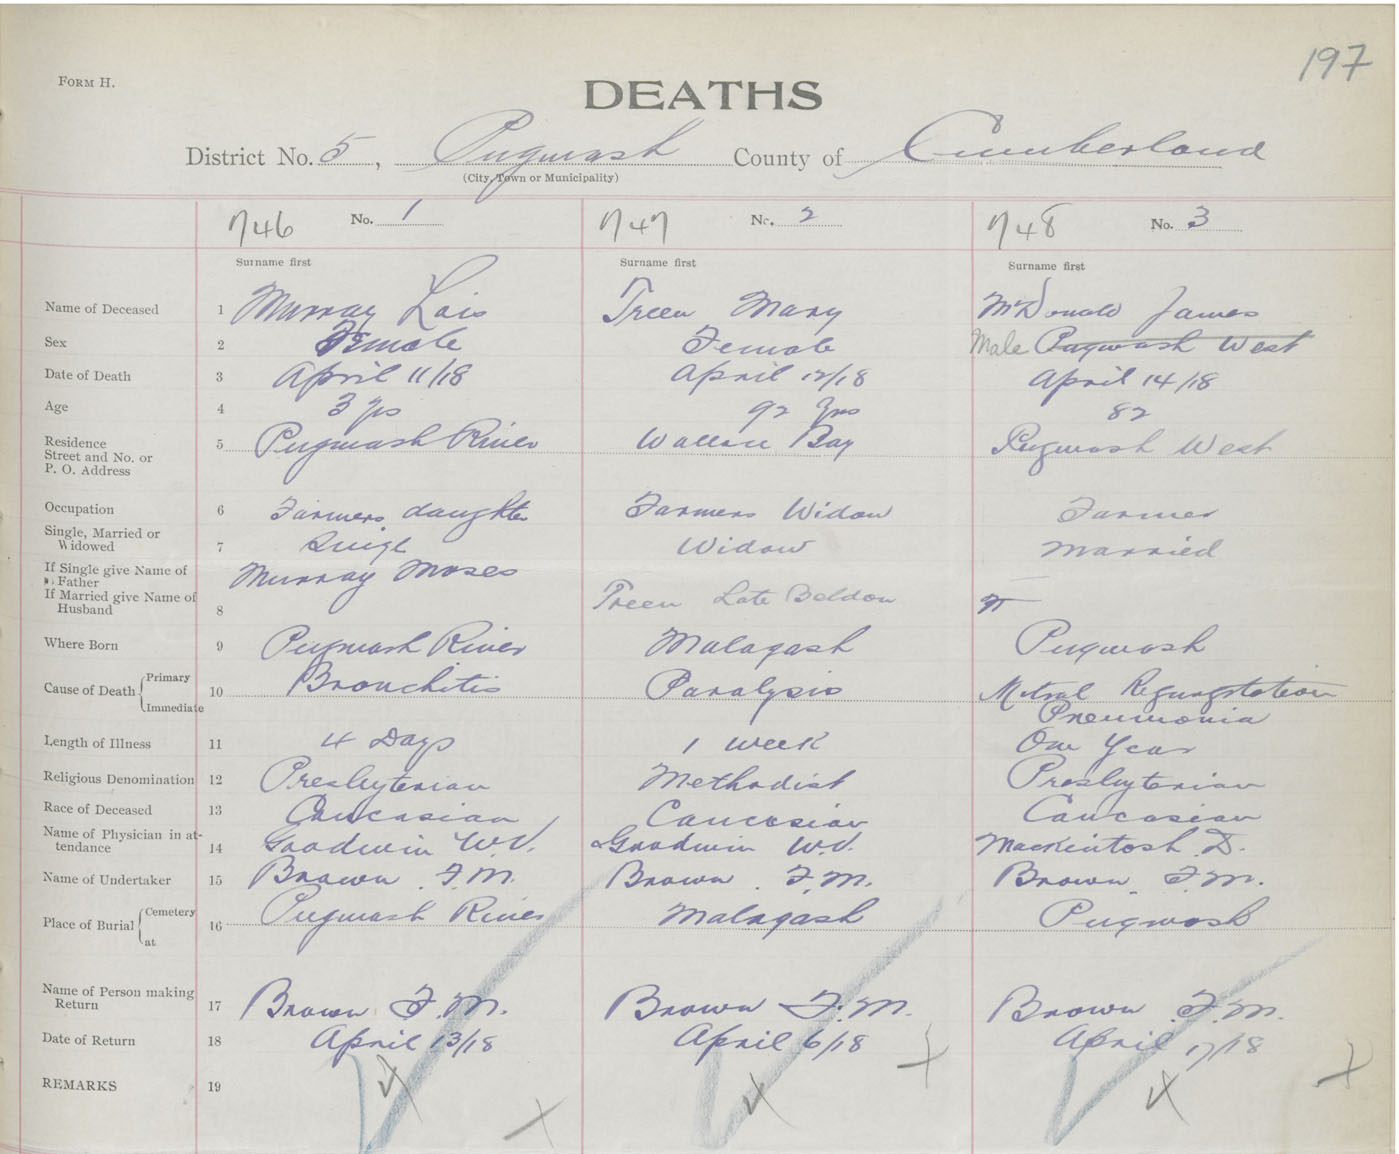 197
FORM H.
DEATHS
District No. 5, Pugwash County of Cumberland
(City, Town or Municipality)
746 No. 1 747 No. 2 748 No. 3
Surname first Surname first Surname first
Name of Deceased 1 Murray Lois Treen Mary McDonald James
Sex 2 Female Female Male Pugwash West
Date of Death 3 April 11/18 April 12/18 April 14/18
Age 4 3 yrs 92 yrs 82
Residence
Street and No. or 5 Pugwash River Wallace Bay Pugwash West
P. O. Address
Occupation 6 Farmers daughter Farmers Widow Farmer
Single, Married or
Widowed 7 Singl Widow Married
If Single give Name of Murray Moses
Father
If Married give Name of Treen Late Beldon
Husband 8
Where Born 9 Pugwash River Malagash Pugwash
Cause of Death Primary 10 Bronchitis Paralysis Mitral Regurgitation
Immediate Pneumonia
Length of Illness 11 4 Days 1 week One Year
Religious Denomination 12 Presbyterian Methodist Presbyterian
Race of Deceased 13 Caucasian Caucasian Caucasian
Name of Physician in at-
tendance 14 Goodwin W.V. Goodwin W.V. Mackintosh D.
Name of Undertaker 15 Brown F.M. Brown F.M. Brown F.M.
Place of Burial Cemetery 16 Pugwash River Malagash Pugwash
at
Name of Person making
Return 17 Brown F.M. Brown F.M. Brown F.M.
Date of Return 18 April 13/18 April 6/18 April 17/18
REMARKS 19